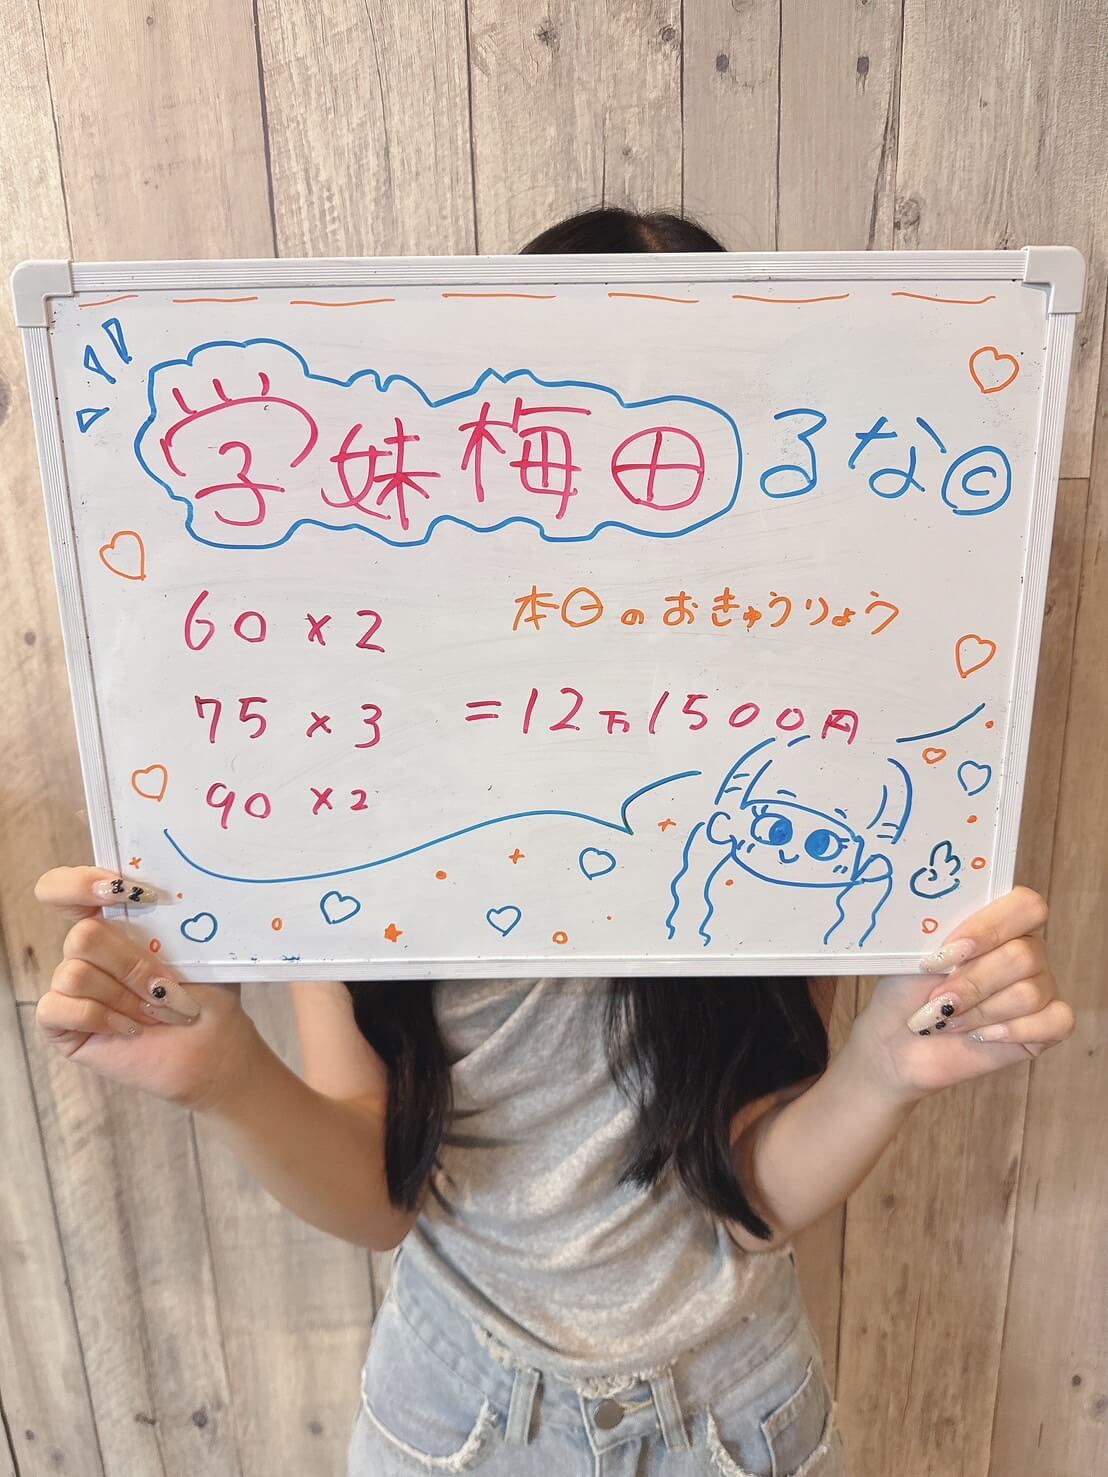 学妹梅田 るな©
本日のおきゅうりょう
60×2
75×3 =12万1500円
90×2